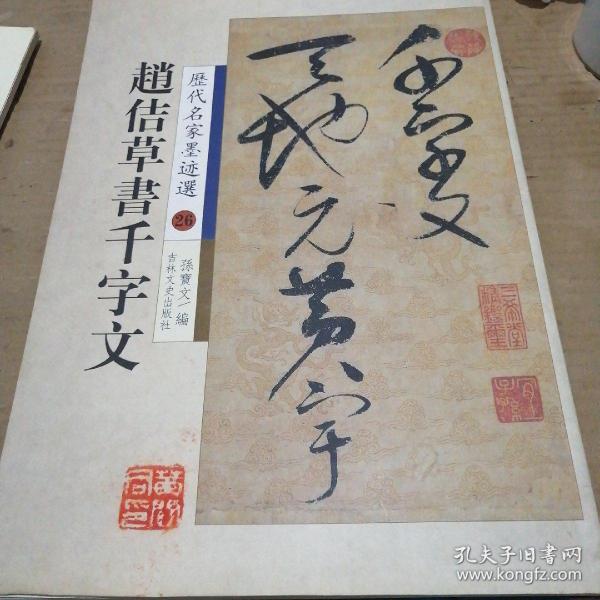 趙佶草書千字文
歷代名家墨迹選
26
孫寶文／編
吉林文史出版社
千字文
天地元黃宇
孔夫子旧书网
www.kongfz.com